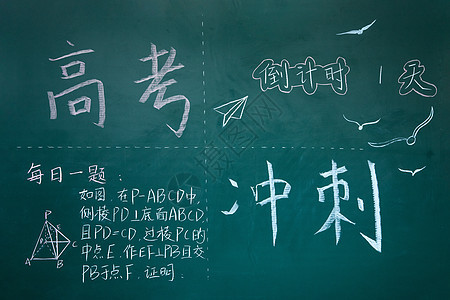 高考
倒计时 1天
每日一题：
如图.在P-ABCD中,
侧棱PD⊥底面ABCD
且PD=CD,过棱PC的
中点E.作EF⊥PB且交
PB于点F.证明:
P
A
B
C
冲刺